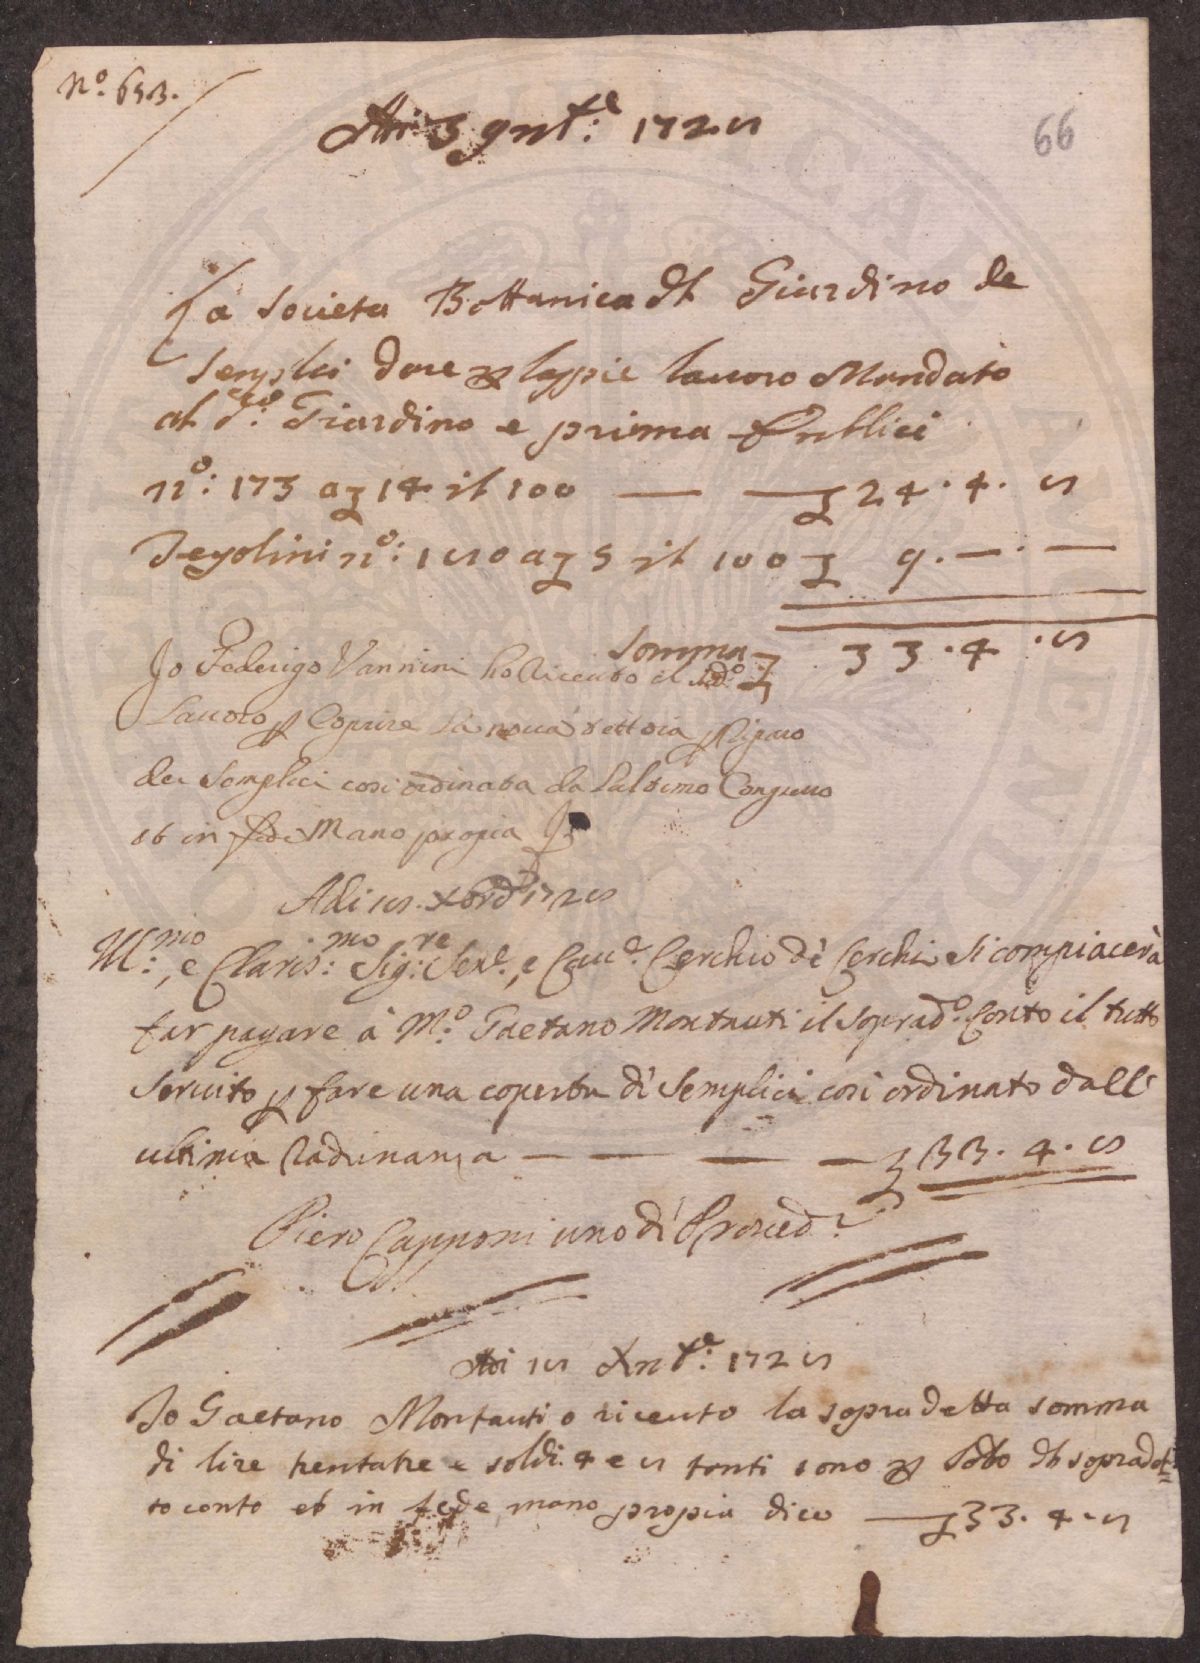 N.º 653.
66
Adi 3 9nt.e: 1725
La Società Bottanica dl Giardino de
Semplici dare p lappie lavoro Mandato
al d.º Giardino e prima
nº: 173 a £ 14 il 100 — — £ 24.4.5
Tegolini nº: 150 a £ 5 il 100 £ 9.—.—
Somma £ 33.4.5
Jo Federigo Vannini ho riceuto il sud.º
Lavoro p Coprire la nova tettoia p Riparo
dei Semplici cosi ordinata da Lultimo Congreso
et in fede Mano propia
Adi 15. Xbre 1725
Ill.mo, e Claris.mo Sig.re Sen.e, e Cav.e Cerchio de Cerchi si compiacerà
far pagare à M.º Gaetano Montauti il soprad.º Conto il tutto
servito p fare una coperta di Semplici cosi ordinato dall'
ultima Radunanza — — — — £ 33.4.5
Piero Capponi uno di Proved.i
Adi 15 Xnt.e: 1725
Jo Gaetano Montauti o riceuto la sopradetta somma
di lire trentatre e soldi 4 e 5 tanti sono p saldo dl sopradet-
to conto et in fede mano propia dico — £ 33.4.5